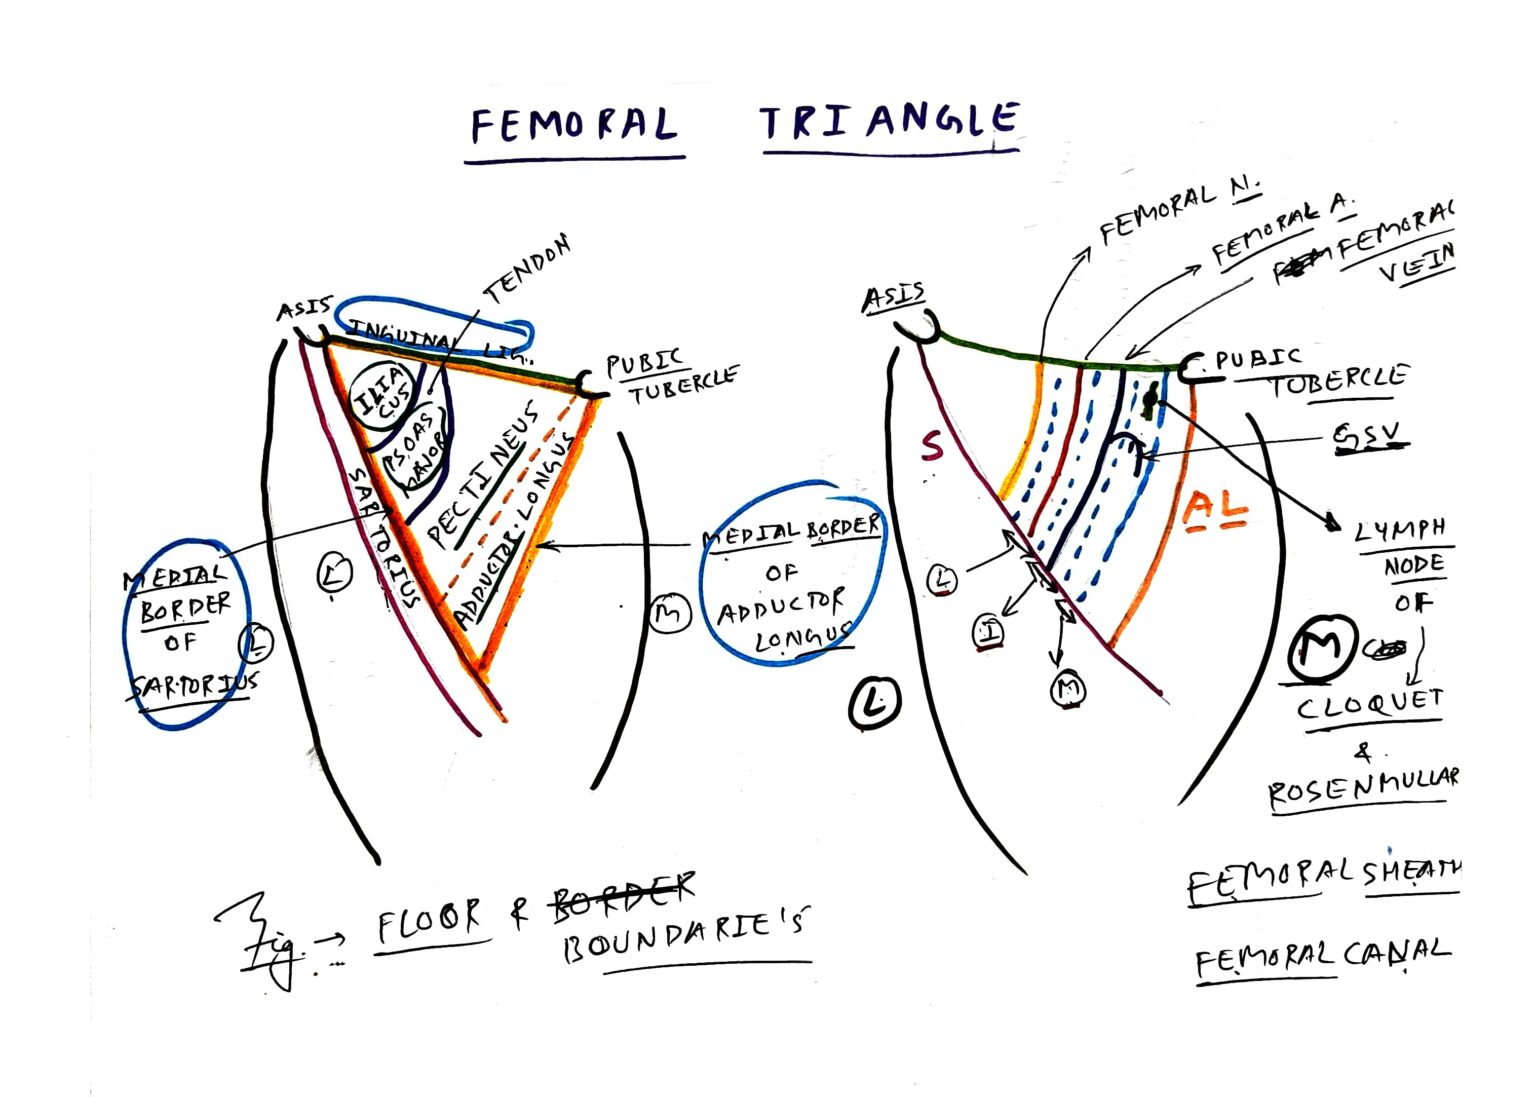 FEMORAL TRIANGLE
TENDON
ASIS
INGUINAL LIG.
PUBIC
TUBERCLE
ILIA
CUS
PSOAS
MAJOR
PECTINEUS
ADDUCTOR LONGUS
SARTORIUS
MEDIAL
BORDER
OF
SARTORIUS
L
L
M
MEDIAL BORDER
OF
ADDUCTOR
LONGUS
Fig. → FLOOR & BORDER
BOUNDARIE'S
FEMORAL N.
FEMORAL A.
FEMORAL
VEIN
ASIS
PUBIC
TUBERCLE
S
GSV
AL
LYMPH
NODE
OF
CLOQUET
&
ROSENMULLAR
L
I
M
L
M
FEMORAL SHEATH
FEMORAL CANAL